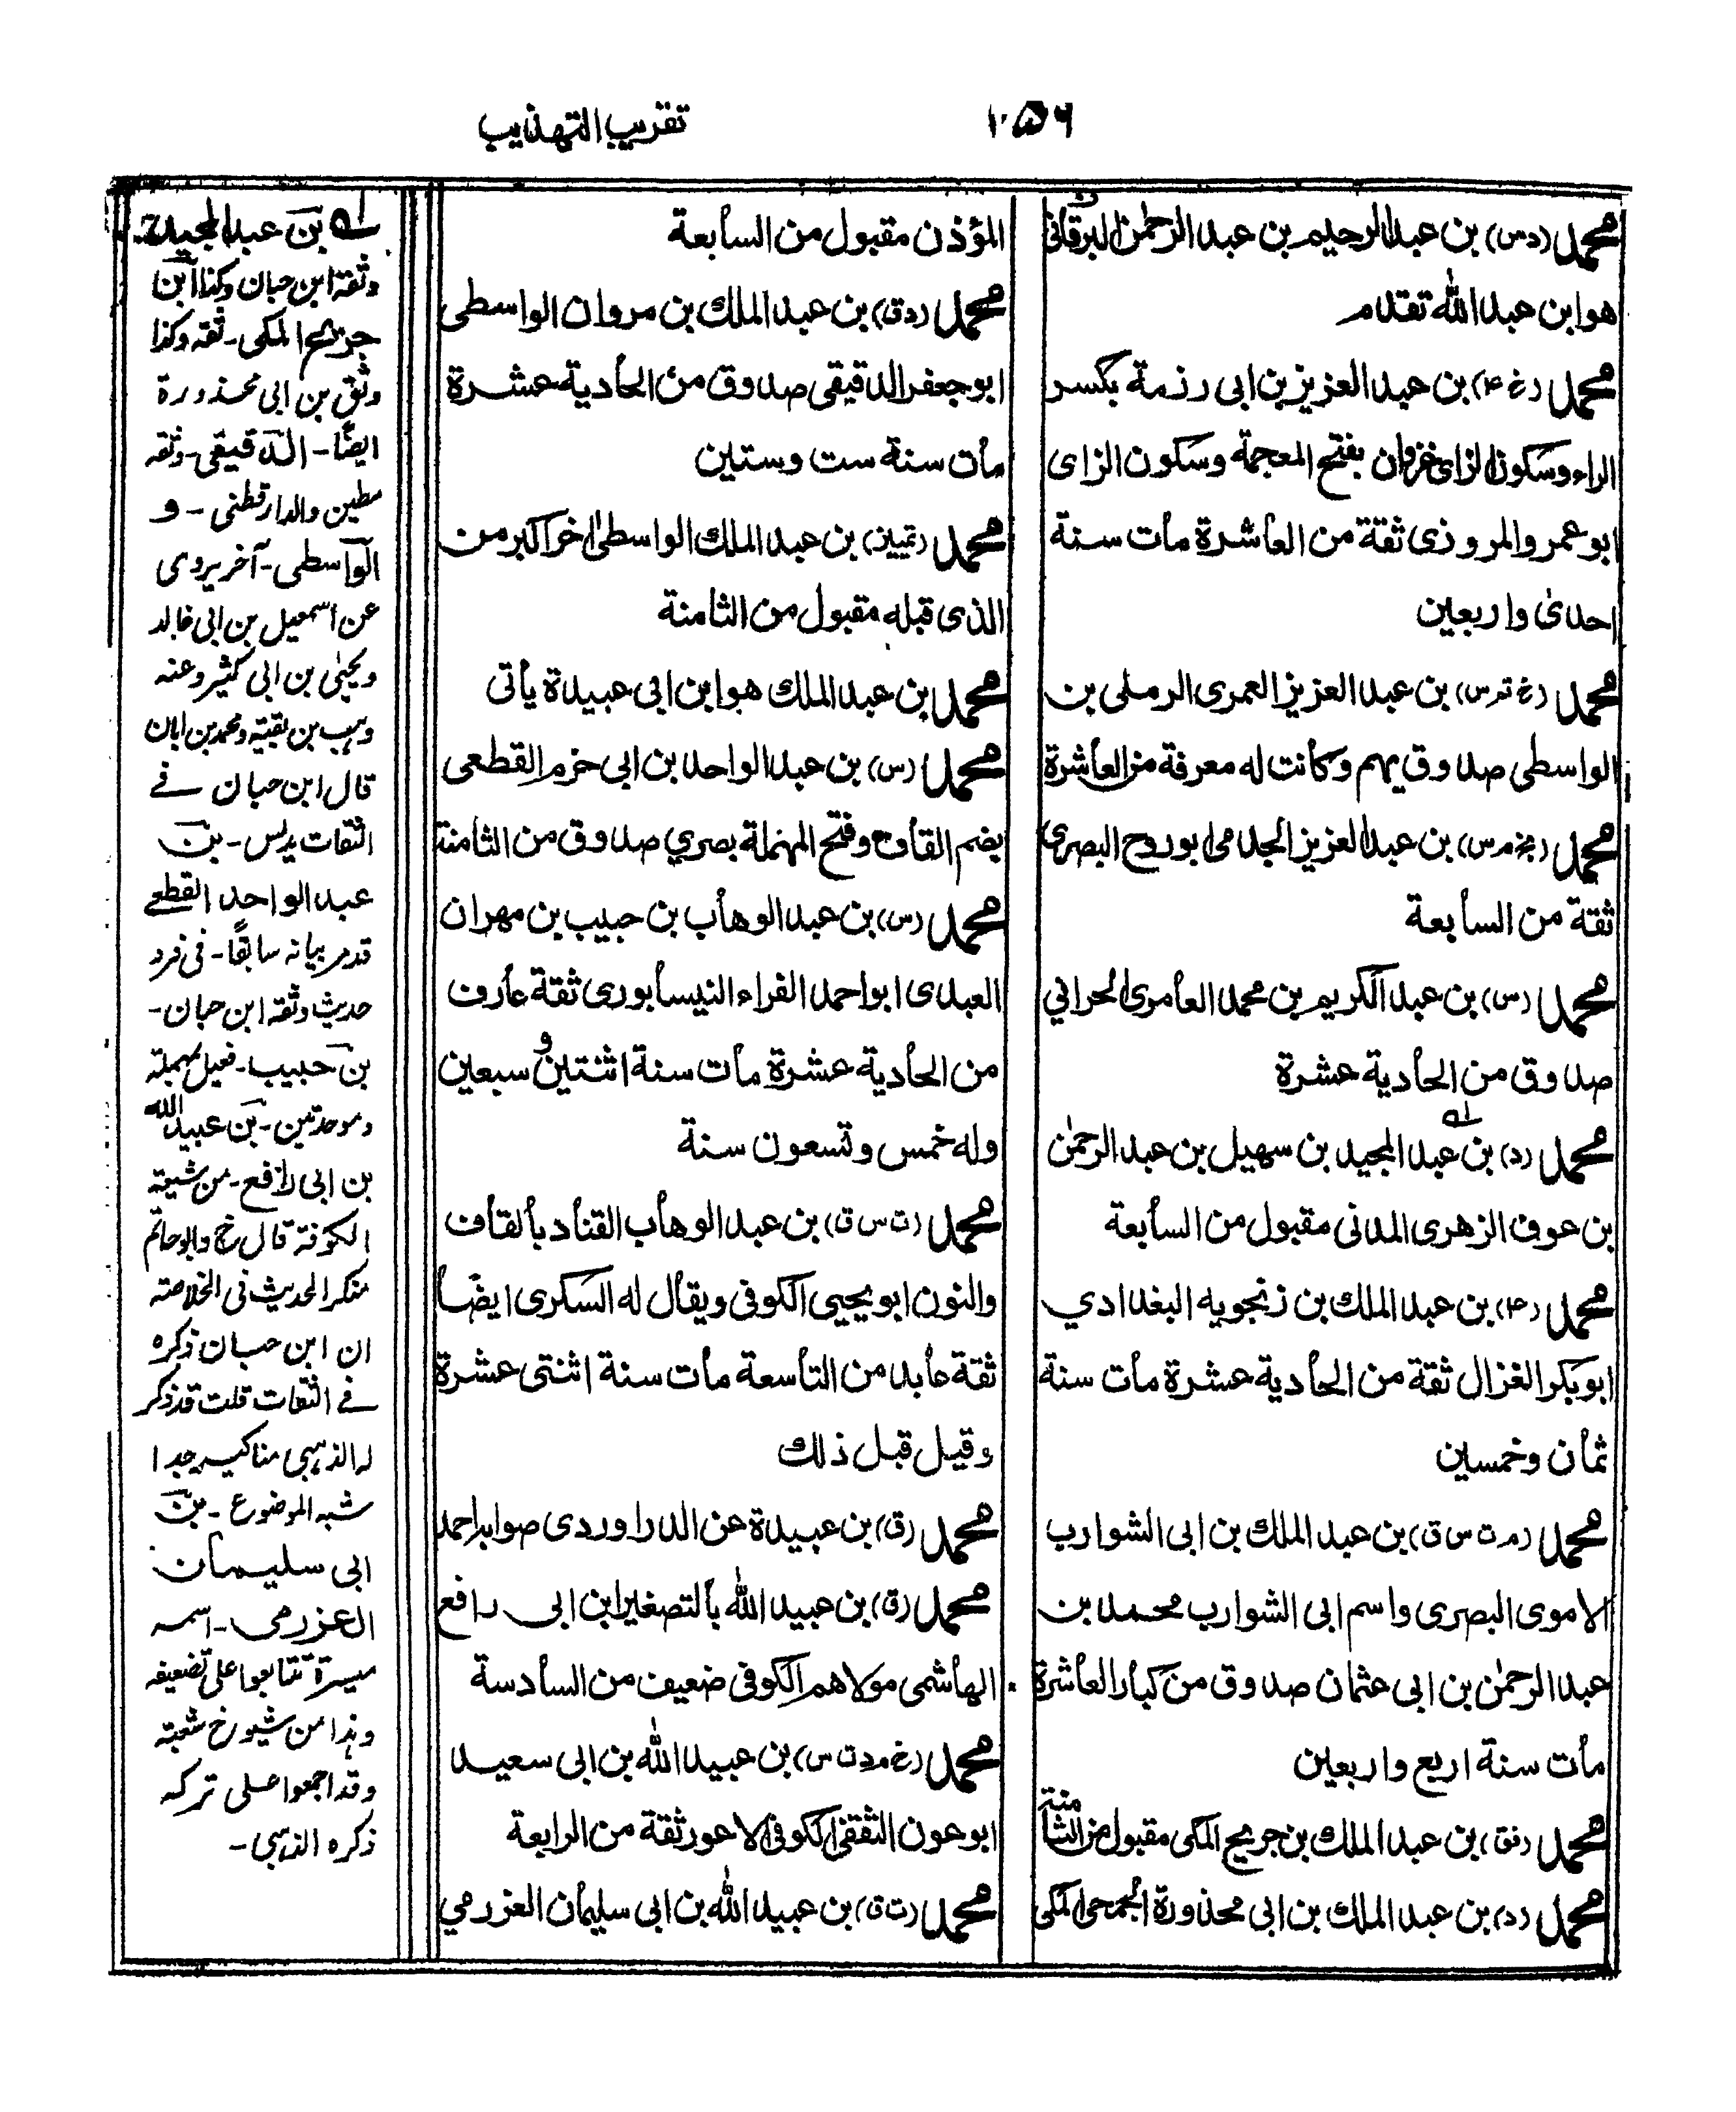 ١٠٥٦
تقریب التهذیب
محمد (دس) بن عبدالرحیم بن عبد الرحمٰن البرقانی
هو ابن عبد اللّٰه تقدم
محمد (خ ۴) بن عبد العزیز بن ابی رزمة بکسر
الراء وسکون الزای غزوان بفتح المعجمة وسکون الزای
ابو عمر والمروزی ثقة من العاشرة مات سنة
احدیٰ واربعین
محمد (خ تم س) بن عبد العزیز العمری الرملی بن
الواسطی صدوق یهم وکانت له معرفة من العاشرة
محمد (بخ م س) بن عبد العزیز الجدامی ابو روح البصری
ثقة من السابعة
محمد (س) بن عبد الکریم بن محمد العامری الحرانی
صدوق من الحادیة عشرة
محمد (د) بن عبد المجید بن سهیل بن عبد الرحمٰن
بن عوف الزهری المدنی مقبول من السابعة
محمد (۴) بن عبد الملك بن زنجویه البغدادی
ابو بکر الغزال ثقة من الحادیة عشرة مات سنة
ثمان وخمسین
محمد (م ت س ق) بن عبد الملك بن ابی الشوارب
الاموی البصری واسم ابی الشوارب محمد بن
عبد الرحمٰن بن ابی عثمان صدوق من کبار العاشرة
مات سنة اربع واربعین
محمد بن عبد الملك بن جریج المکی مقبول من الثامنة
محمد (د) بن عبد الملك بن ابی محذورة الجمحی المکی
المؤذن مقبول من السابعة
محمد (دق) بن عبد الملك بن مروان الواسطی
ابو جعفر الدقیقی صدوق من الحادیة عشرة
مات سنة ست وستین
محمد (تمییز) بن عبد الملك الواسطی اخر اکبر من
الذی قبله مقبول من الثامنة
محمد بن عبد الملك هو ابن ابی عبیدة یأتی
محمد (س) بن عبد الواحد بن ابی حزم القطعی
بضم القاف وفتح المهملة بصري صدوق من الثامنة
محمد (س) بن عبد الوهاب بن حبیب بن مهران
العبدی ابو احمد الفراء النیسابوری ثقة عارف
من الحادیة عشرة مات سنة اثنتین و سبعین
وله خمس وتسعون سنة
محمد (ت س ق) بن عبد الوهاب القناد بالقاف
والنون ابو یحیی الکوفی ویقال له السکری ایضًا
ثقة عابد من التاسعة مات سنة اثنتی عشرة
وقیل قبل ذلك
محمد (ق) بن عبیدة عن الدراوردی صوابه احمد
محمد (ق) بن عبید اللّٰه بالتصغیر ابن ابی رافع
الهاشمی مولاهم الکوفی ضعیف من السادسة
محمد (خ م د ت س) بن عبید اللّٰه بن ابی سعید
ابو عون الثقفی الکوفی الاعور ثقة من الرابعة
محمد (ت ق) بن عبید اللّٰه بن ابی سلیمان العزرمي
لـه بن عبد المجید
وثقة ابن حبان وکذا ابن
جریج المکی - ثقه وکذا
وثق بن ابی محذورة
ایضًا - الدقیقی - وثقه
مطین والدارقطنی - و
الواسطی - آخر یروی
عن اسمعیل بن ابی خالد
ویحیٰی بن ابی کثیر وعنه
وہب بن بقیة ومحمد بن ابان
قال ابن حبان فے
الثقات یدلس - بن
عبد الواحد القطعے
قدم بیانه سابقًا - فی فرد
حدیث وثقه ابن حبان -
بن حبیب - فعیل بمهملة
وموحدتین - بن عبید اللّٰه
بن ابی رافع - من شیعة
الکوفة قال خ وابو حاتم
منکر الحدیث فی الخلاصة
ان ابن حبان ذکره
فے الثقات قلت قد ذکر
له الذہبی مناکیر جدا
شبه الموضوع - بن
ابی سلیمان
العزرمی - اسمه
میسرة تتابعوا علی تضعیفه
وہذا من شیوخ شعبة
وقد اجمعوا علی ترکه
ذکره الذہبی -